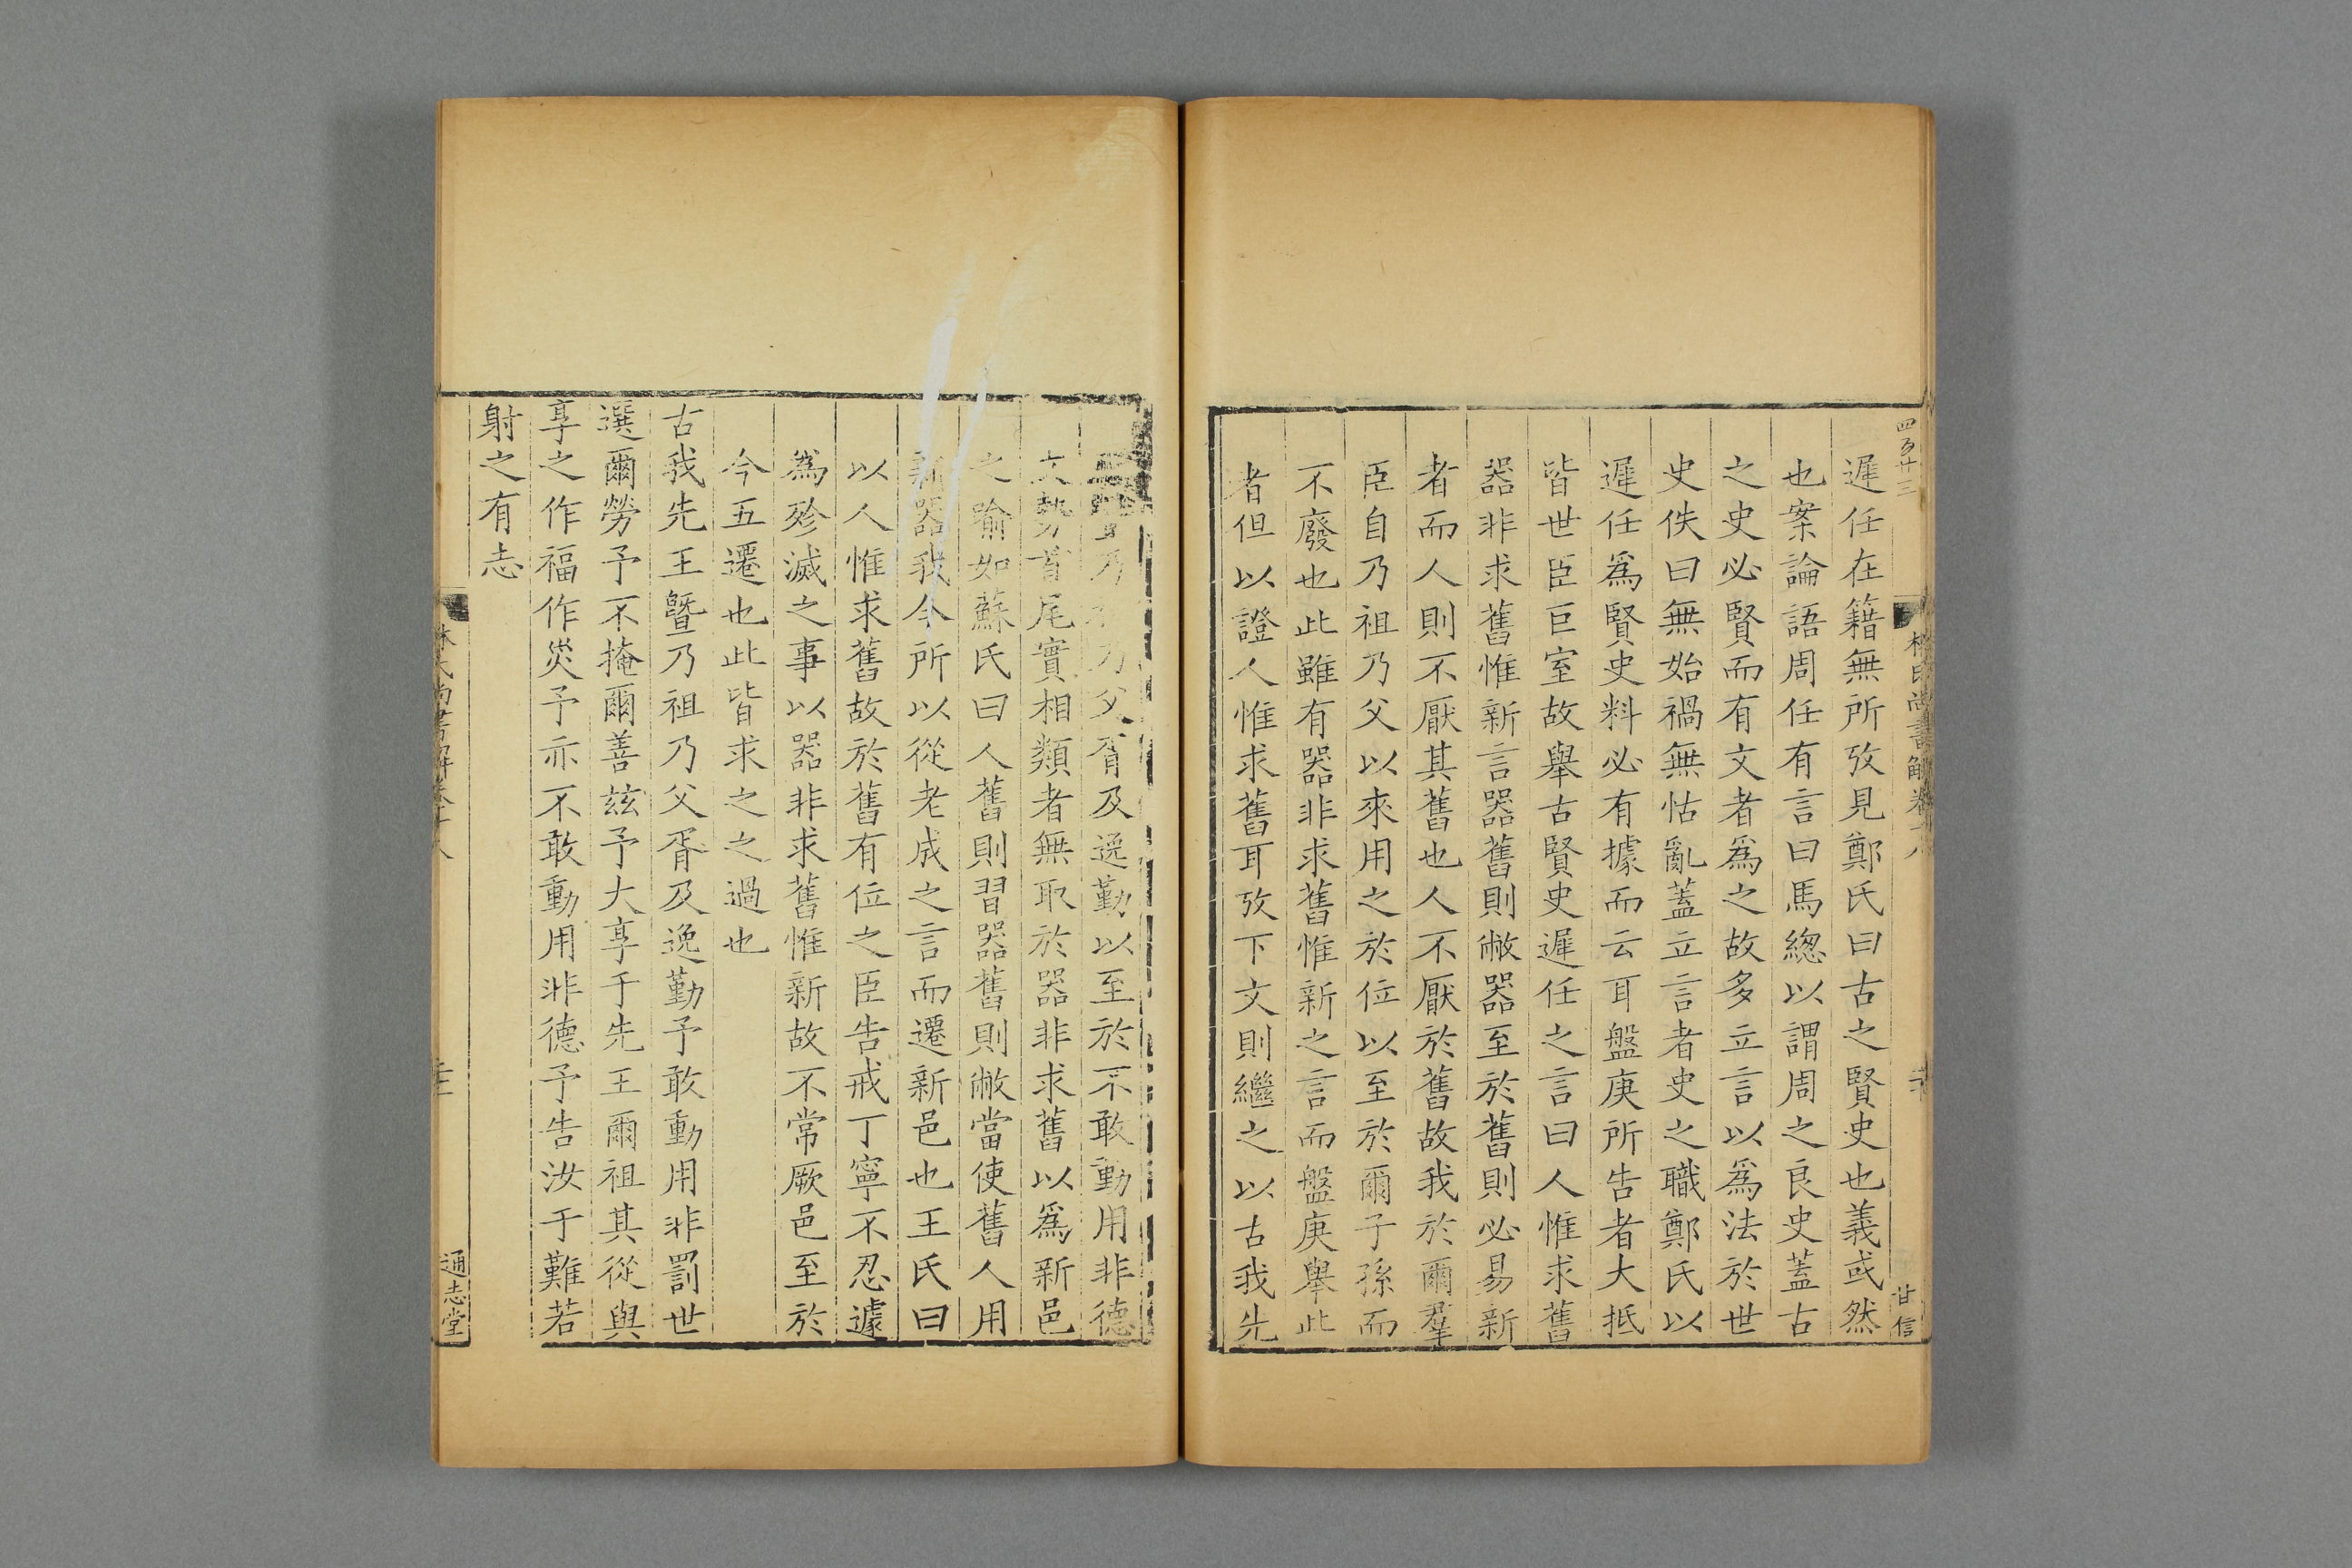 四百廿三
遲任在籍無所攷見鄭氏曰古之賢史也義或然
也案論語周任有言曰馬緫以謂周之良史蓋古
之史必賢而有文者爲之故多立言以爲法於世
史佚曰無始禍無怙亂蓋立言者史之職鄭氏以
遲任爲賢史料必有據而云耳盤庚所告者大抵
皆世臣巨室故舉古賢史遲任之言曰人惟求舊
器非求舊惟新言器舊則敝器至於舊則必易新
者而人則不厭其舊也人不厭於舊故我於爾羣
臣自乃祖乃父以來用之於位以至於爾子孫而
不廢也此雖有器非求舊惟新之言而盤庚舉此
者但以證人惟求舊耳攷下文則繼之以古我先
甘信
乃父胥及逸勤以至於不敢動用非德
文勢首尾實相類者無取於器非求舊以爲新邑
之喻如蘇氏曰人舊則習器舊則敝當使舊人用
新器我今所以從老成之言而遷新邑也王氏曰
以人惟求舊故於舊有位之臣告戒丁寧不忍遽
爲殄滅之事以器非求舊惟新故不常厥邑至於
今五遷也此皆求之之過也
古我先王曁乃祖乃父胥及逸勤予敢動用非罰世
選爾勞予不掩爾善兹予大享于先王爾祖其從與
享之作福作災予亦不敢動用非德予告汝于難若
射之有志
通志堂